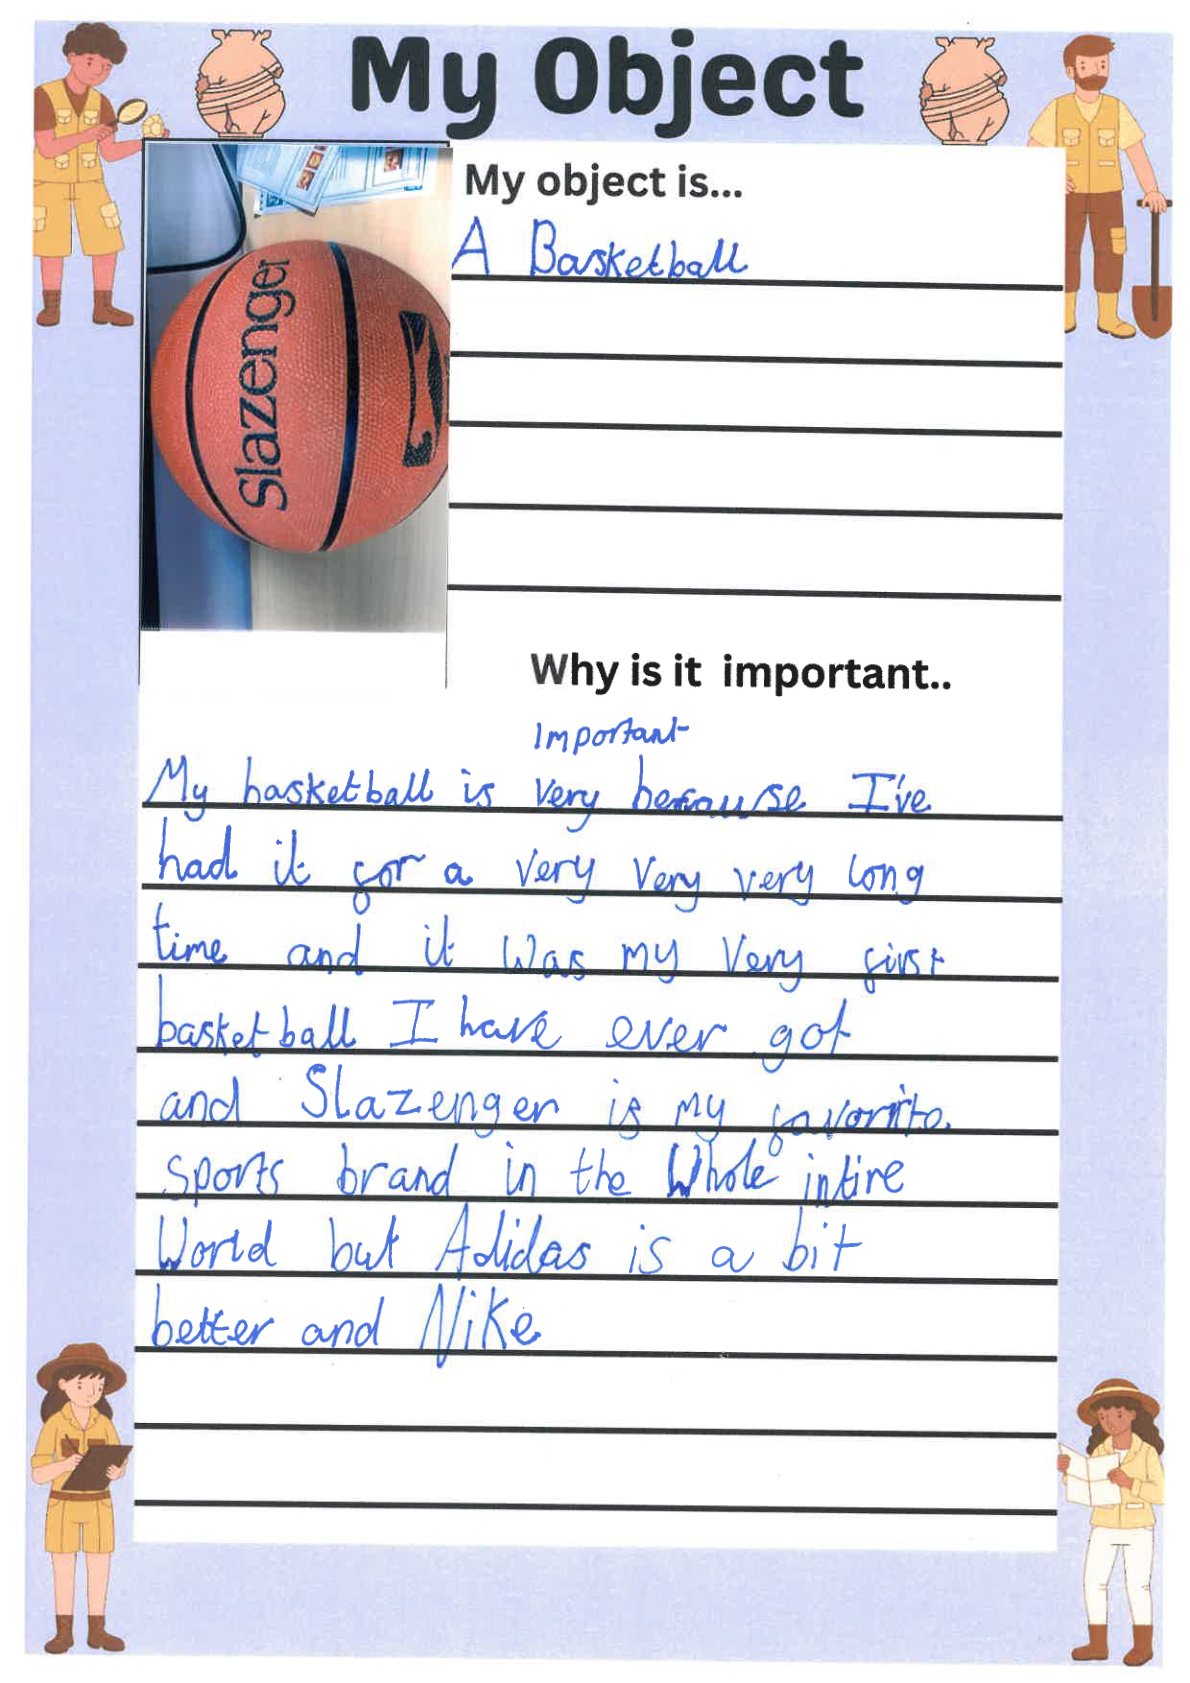 My Object
Slazenger
My object is...
A Basketball
Why is it important..
Important
My basketball is very because I've
had it for a very very very long
time and it was my very first
basketball I have ever got
and Slazenger is my favorite
sports brand in the Whole intire
World but Adidas is a bit
better and Nike